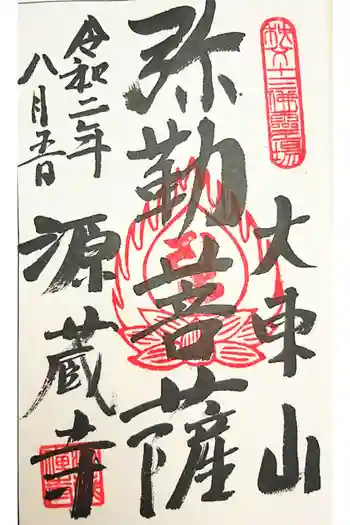 大東山
弥勒菩薩
源蔵寺
令和二年
八月五日